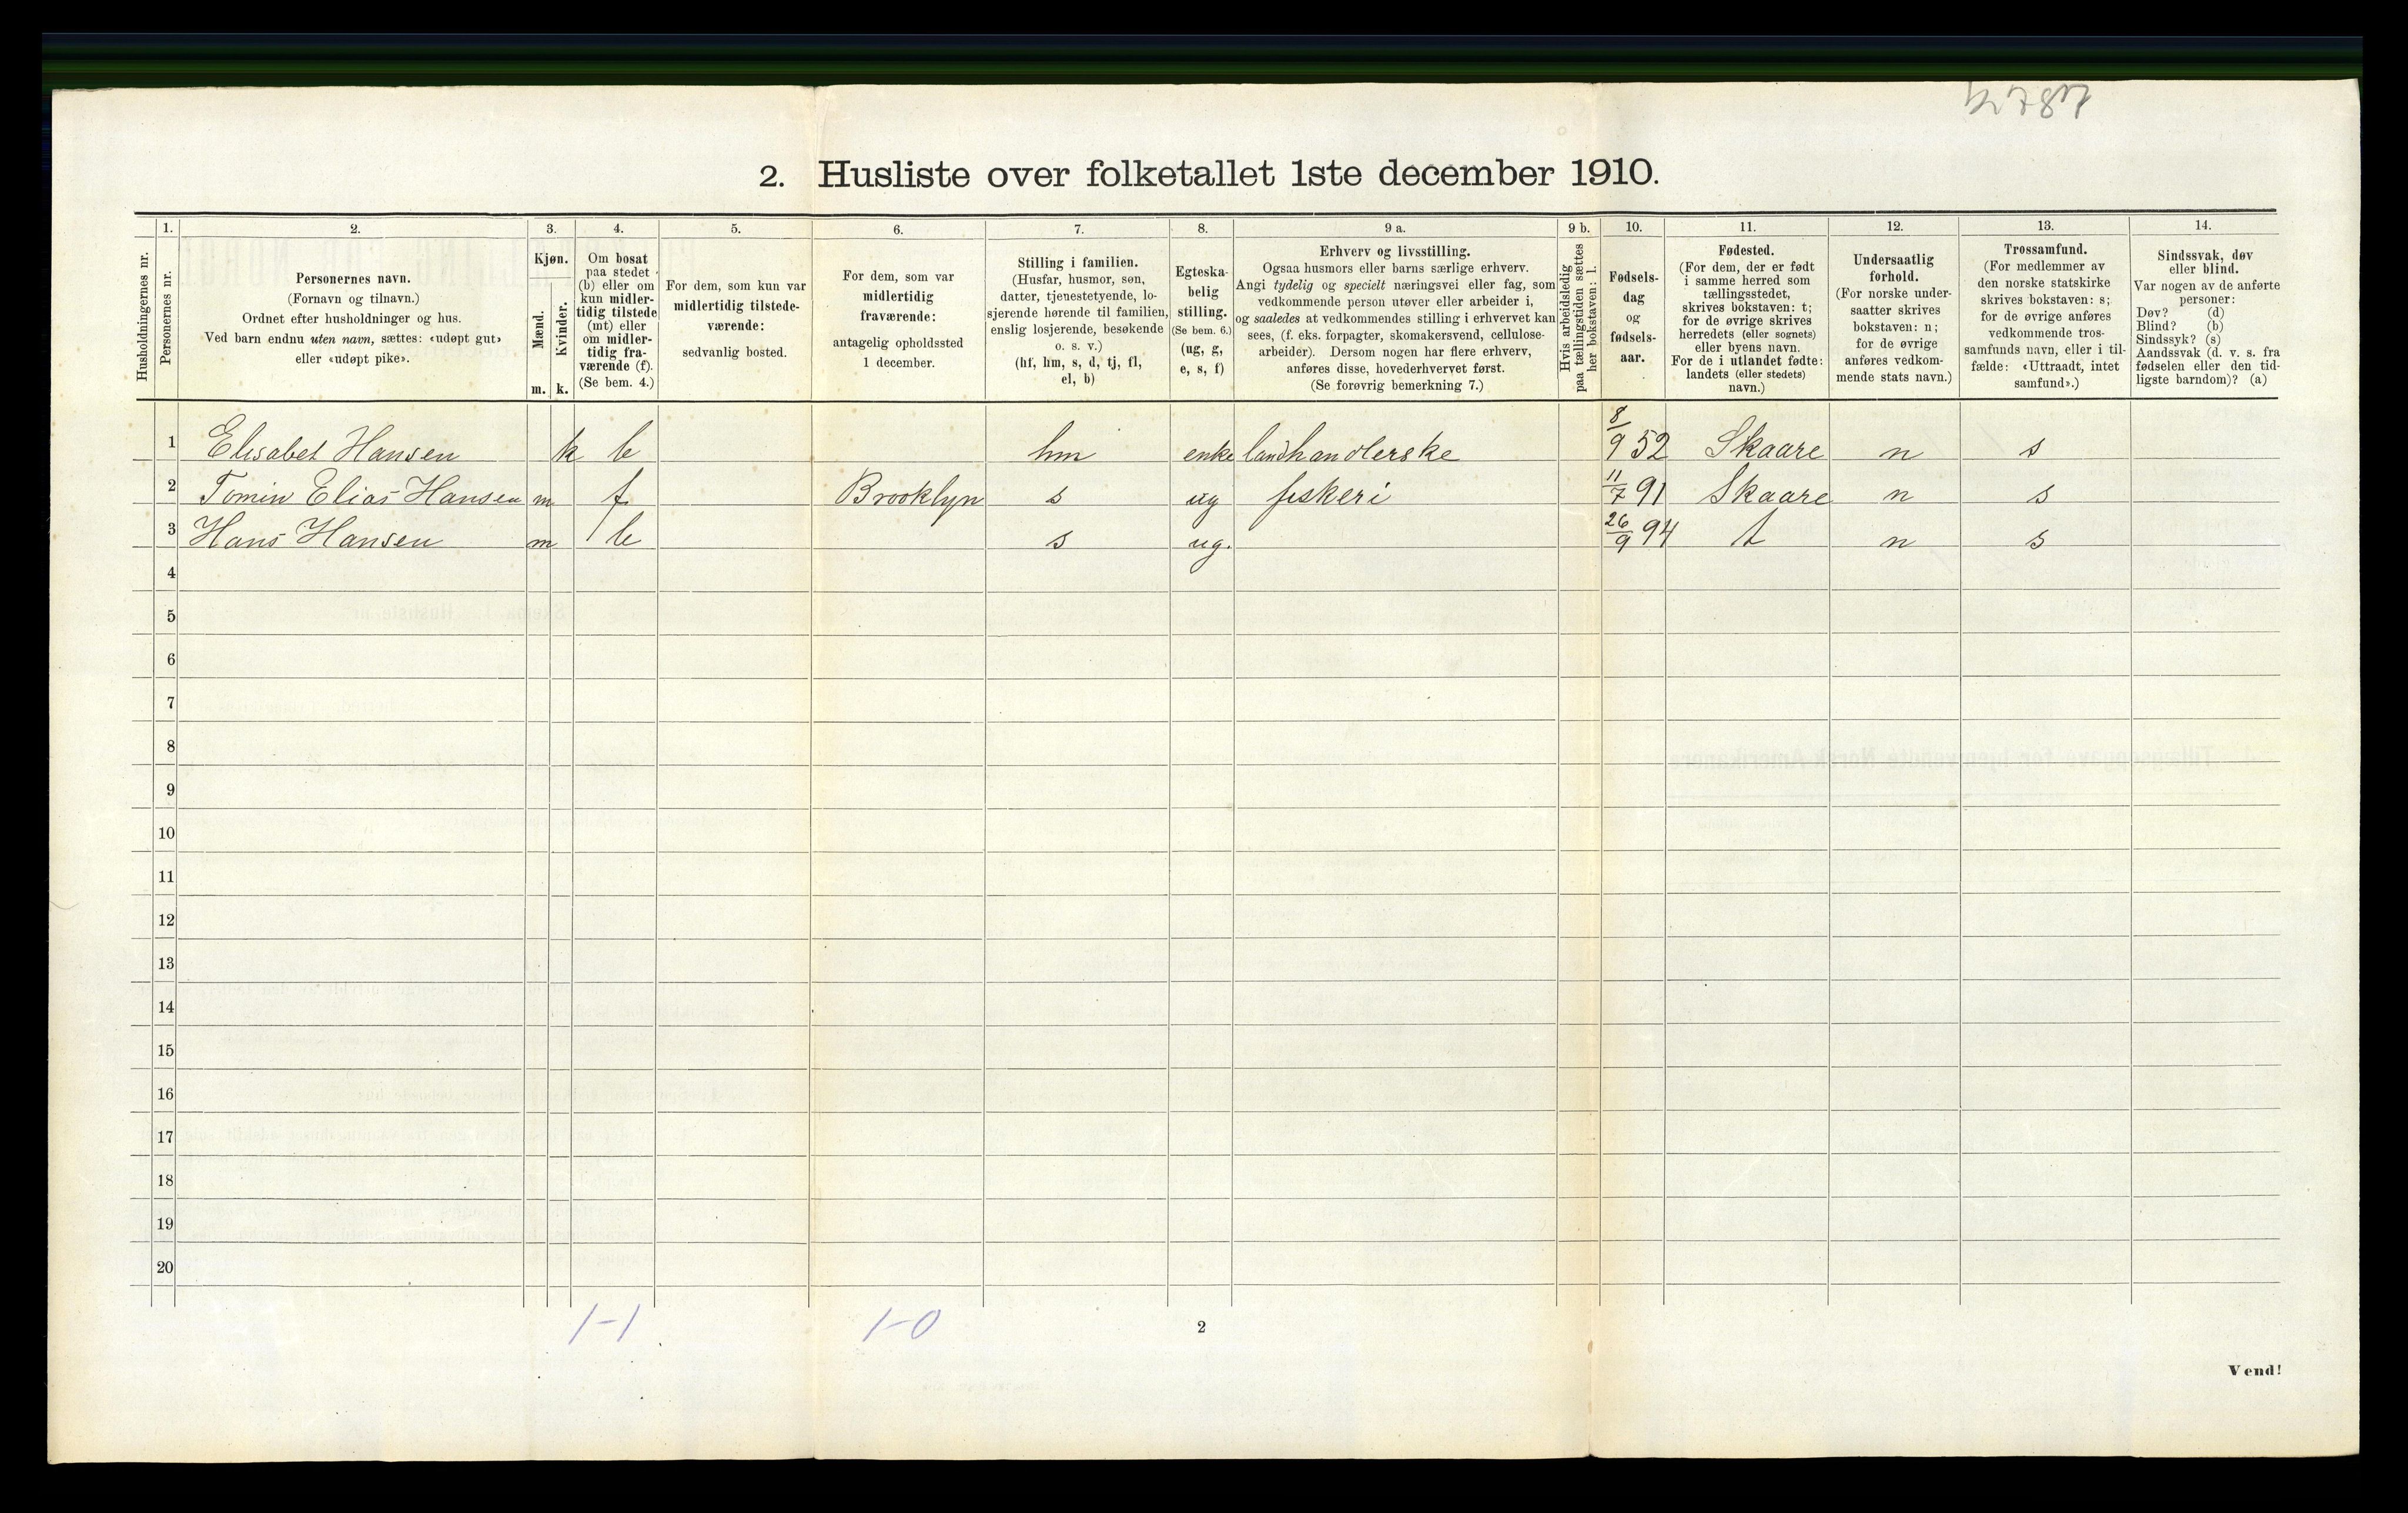 2. Husliste over folketallet 1ste december 1910.
Husholdningernes nr.
1.
Personernes nr.
2.
Personernes navn.
(Fornavn og tilnavn.)
Ordnet efter husholdninger og hus.
Ved barn endnu uten navn, sættes: «udøpt gut»
eller «udøpt pike».
3.
Kjøn.
Mænd.
m.
Kvinder.
k.
4.
Om bosat
paa stedet
(b) eller om
kun midler-
tidig tilstede
(mt) eller
om midler-
tidig fra-
værende (f).
(Se bem. 4.)
5.
For dem, som kun var
midlertidig tilstede-
værende:
sedvanlig bosted.
6.
For dem, som var
midlertidig
fraværende:
antagelig opholdssted
1 december.
7.
Stilling i familien.
(Husfar, husmor, søn,
datter, tjenestetyende, lo-
sjerende hørende til familien,
enslig losjerende, besøkende
o. s. v.)
(hf, hm, s, d, tj, fl,
el, b)
8.
Egteska-
belig
stilling.
(Se bem. 6.)
(ug, g,
e, s, f)
9 a.
Erhverv og livsstilling.
Ogsaa husmors eller barns særlige erhverv.
Angi tydelig og specielt næringsvei eller fag, som
vedkommende person utøver eller arbeider i,
og saaledes at vedkommendes stilling i erhvervet kan
sees, (f. eks. forpagter, skomakersvend, cellulose-
arbeider). Dersom nogen har flere erhverv,
anføres disse, hovederhvervet først.
(Se forøvrig bemerkning 7.)
9 b.
Hvis arbeidsledig
paa tællingstiden sættes
her bokstaven: l.
10.
Fødsels-
dag
og
fødsels-
aar.
11.
Fødested.
(For dem, der er født
i samme herred som
tællingsstedet,
skrives bokstaven: t;
for de øvrige skrives
herredets (eller sognets)
eller byens navn.
For de i utlandet fødte:
landets (eller stedets)
navn.)
12.
Undersaatlig
forhold.
(For norske under-
saatter skrives
bokstaven: n;
for de øvrige
anføres vedkom-
mende stats navn.)
13.
Trossamfund.
(For medlemmer av
den norske statskirke
skrives bokstaven: s;
for de øvrige anføres
vedkommende tros-
samfunds navn, eller i til-
fælde: «Uttraadt, intet
samfund».)
14.
Sindssvak, døv
eller blind.
Var nogen av de anførte
personer:
Døv? (d)
Blind? (b)
Sindssyk? (s)
Aandssvak (d. v. s. fra
fødselen eller den tid-
ligste barndom)? (a)
1 Elisabet Hansen k b hm enke landhandlerske 8/9 52 Skaare n s
2 Tomin Elias Hansen m f Brooklyn s ug fiskeri 11/7 91 Skaare n s
3 Hans Hansen m b s ug. 26/9 94 t n s
4
5
6
7
8
9
10
11
12
13
14
15
16
17
18
19
20
1-1 1-0
2
Vend!